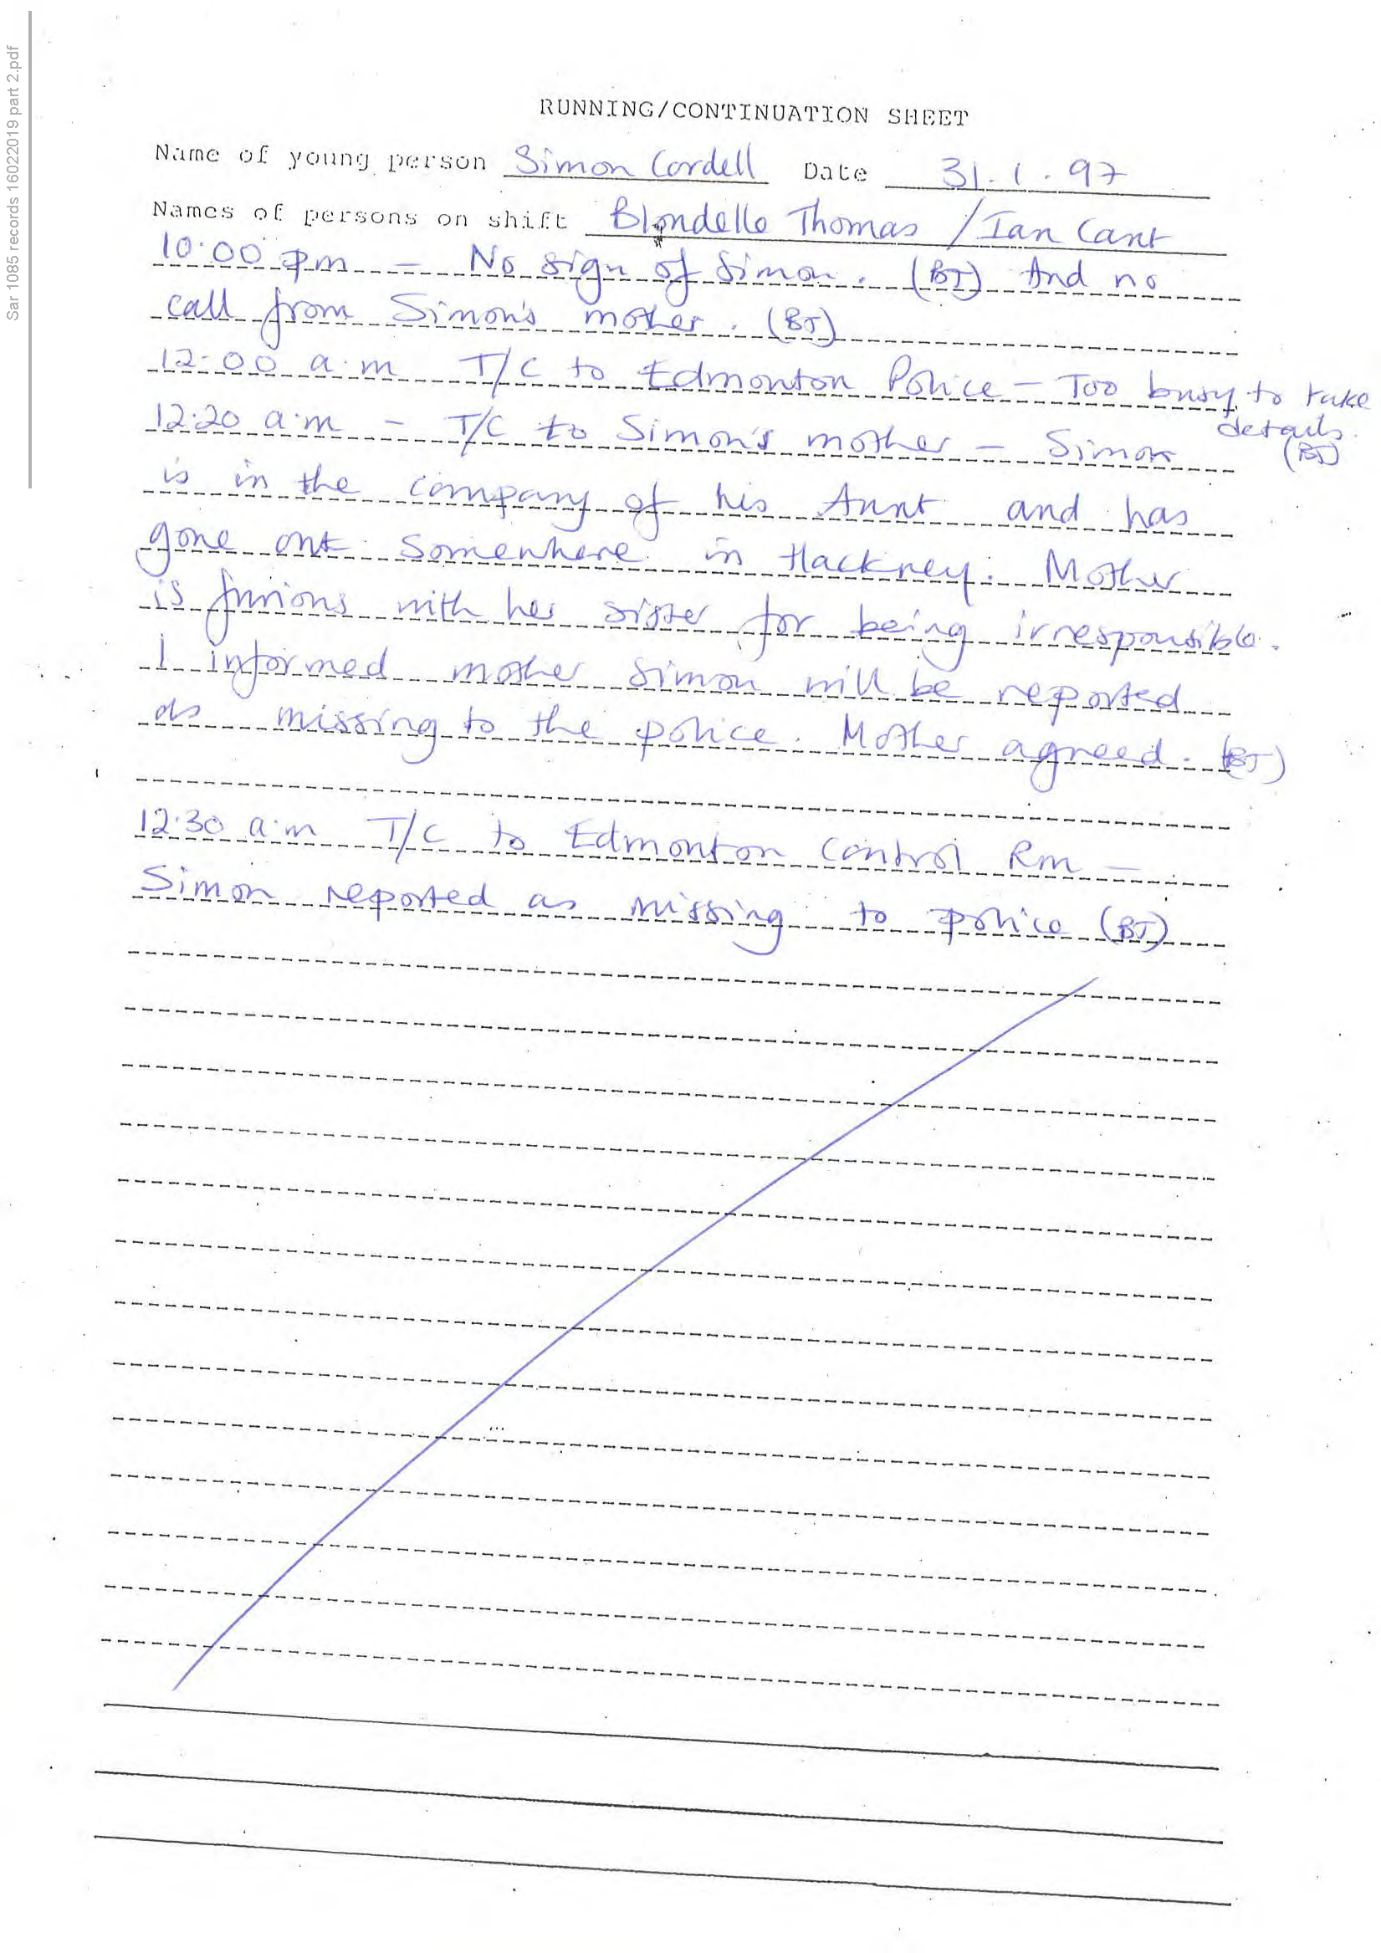 Sar 1085 records 16022019 part 2.pdf
RUNNING/CONTINUATION SHEET
Name of young person Simon Cordell Date 31.1.97
Names of persons on shift Blondelle Thomas / Ian Cant
10:00 pm - No sign of Simon. (BT) And no
call from Simon's mother. (BT)
12:00 a.m T/C to Edmonton Police - Too busy to take
details. (BT)
12:20 a.m - T/C to Simon's mother - Simon
is in the company of his Aunt and has
gone out somewhere in Hackney. Mother
is furious with her sister for being irresponsible.
I informed mother Simon will be reported
as missing to the police. Mother agreed. (BT)
12:30 a.m T/C to Edmonton Control Rm -
Simon reported as missing to police (BT)